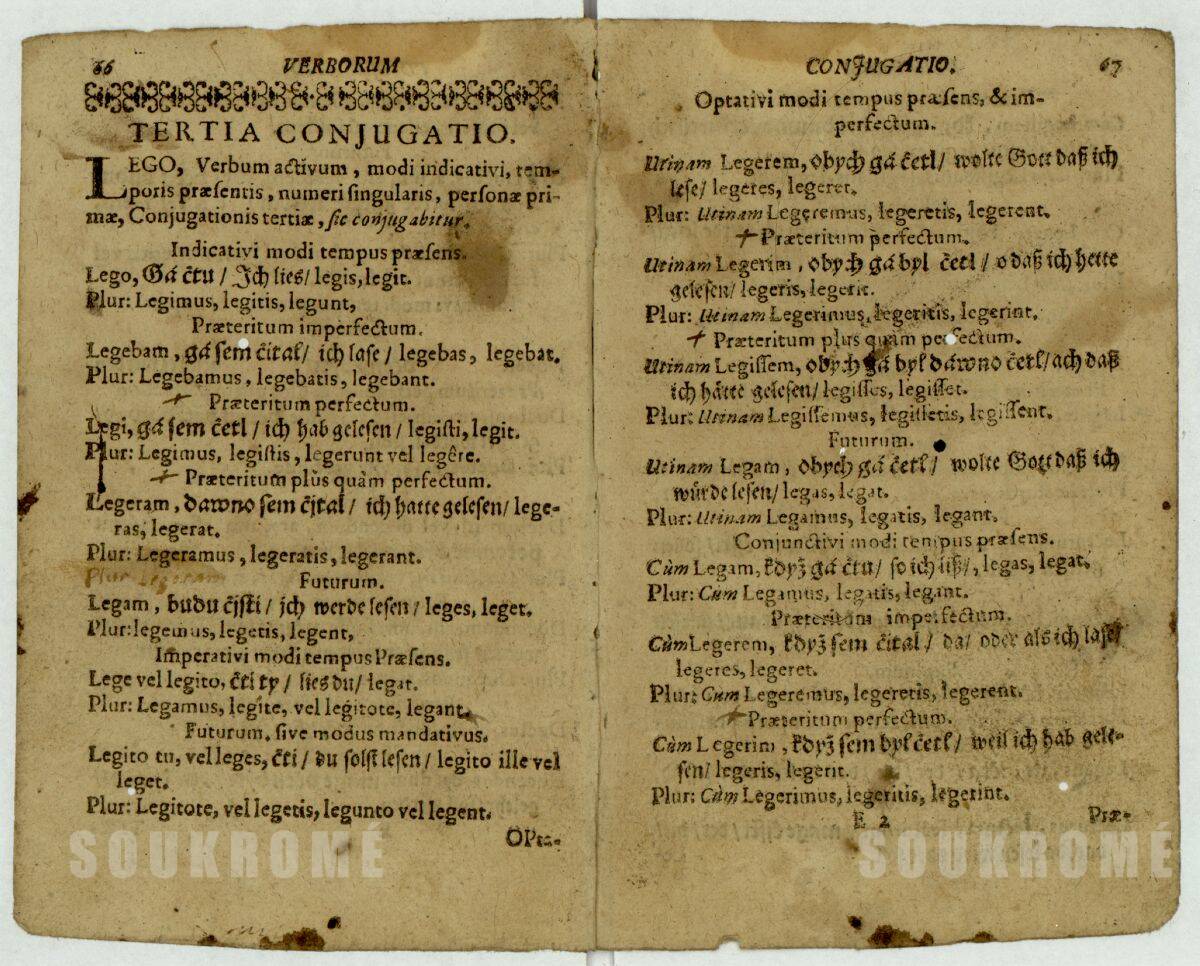 66 VERBORUM
TERTIA CONJUGATIO.
LEGO, Verbum activum, modi indicativi, tem-
poris præsentis, numeri singularis, personæ pri-
mæ, Conjugationis tertiæ, sic conjugabitur.
Indicativi modi tempus præsens.
Lego, Gá čtu / Ich lies / legis, legit.
Plur: Legimus, legitis, legunt,
Præteritum imperfectum.
Legebam, gá sem čital / ich lase / legebas, legebat.
Plur: Legebamus, legebatis, legebant.
Præteritum perfectum.
Legi, gá sem četl / ich hab gelesen / legisti, legit.
Plur: Legimus, legistis, legerunt vel legêre.
Præteritum plùs quàm perfectum.
Legeram, dawno sem čjtal / ich hatte gelesen / lege-
ras, legerat.
Plur: Legeramus, legeratis, legerant.
Plur Legeram Futurum.
Legam, budu čjsti / jch werde lesen / leges, leget.
Plur: legemus, legetis, legent,
Imperativi modi tempus Præsens.
Lege vel legito, čti ty / lies du / legat.
Plur: Legamus, legite, vel legitote, legant.
Futurum. sive modus mandativus.
Legito tu, vel leges, čti / du solst lesen / legito ille vel
leget.
Plur: Legitote, vel legetis, legunto vel legent.
OPta-
CONJUGATIO. 67
Optativi modi tempus præsens, & im-
perfectum.
Utinam Legerem, obych gá četl / wolte Gott daß ich
lese / legeres, legeret.
Plur: Utinam Legeremus, legeretis, legerent.
Præteritum perfectum.
Utinam Legerim, obych gá byl četl / o daß ich hette
gelesen / legeris, legerit.
Plur: Utinam Legerimus, legeritis, legerint.
Præteritum plus quàm perfectum.
Utinam Legissem, obych gá byl dáwno četl / ach daß
ich hätte gelesen / legisses, legisset.
Plur: Utinam Legissemus, legissetis, legissent.
Futurum.
Utinam Legam, obych gá četl / wolte Gott daß ich
würde lesen / legas, legat.
Plur: Utinam Legamus, legatis, legant.
Conjunctivi modi tempus præsens.
Cùm Legam, když gá čtu / so ich liß /, legas, legat.
Plur: Cùm Legamus, legatis, legant.
Præteritum imperfectum.
Cùm Legerem, když sem čital / da / oder als ich lase /
legeres, legeret.
Plur: Cum Legeremus, legeretis, legerent.
Præteritum perfectum.
Cùm Legerim, když sem byl četl / weil ich hab gele-
sen / legeris, legerit.
Plur: Cùm Legerimus, legeritis, legerint.
E 2 Præ-
SOUKROMÉ
SOUKROMÉ